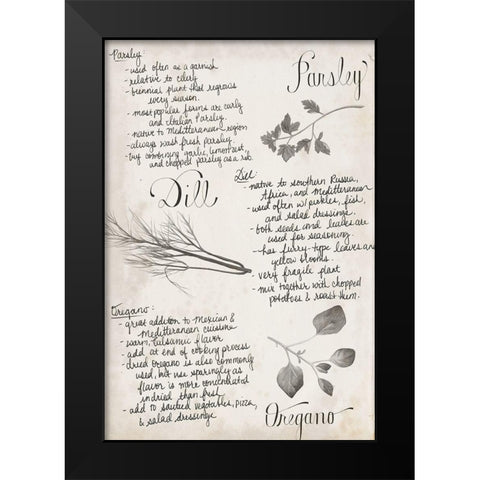 Parsley:
-used often as a garnish
-relative to celery
-biennial plant that regrows
every season.
-most popular forms are curly
and Italian Parsley.
-native to Mediterranean region
-always wash fresh parsley.
-try combining garlic, lemon zest, and
chopped parsley as a rub.
Parsley
Dill
Dill:
-native to southern Russia,
Africa, and Mediterranean
-used often w/ pickles, fish,
and salad dressings.
-both seeds and leaves are
used for seasoning.
-has furry-type leaves and
yellow blooms.
-very fragile plant
-mix together with chopped
potatoes & roast them.
Oregano:
-great addition to Mexican &
Mediterranean cuisine
-warm, balsamic flavor
-add at end of cooking process
-dried oregano is also commonly
used, but use sparingly as
flavor is more concentrated
in dried than fresh
-add to sauteed vegetables, pizza,
& salad dressings
Oregano